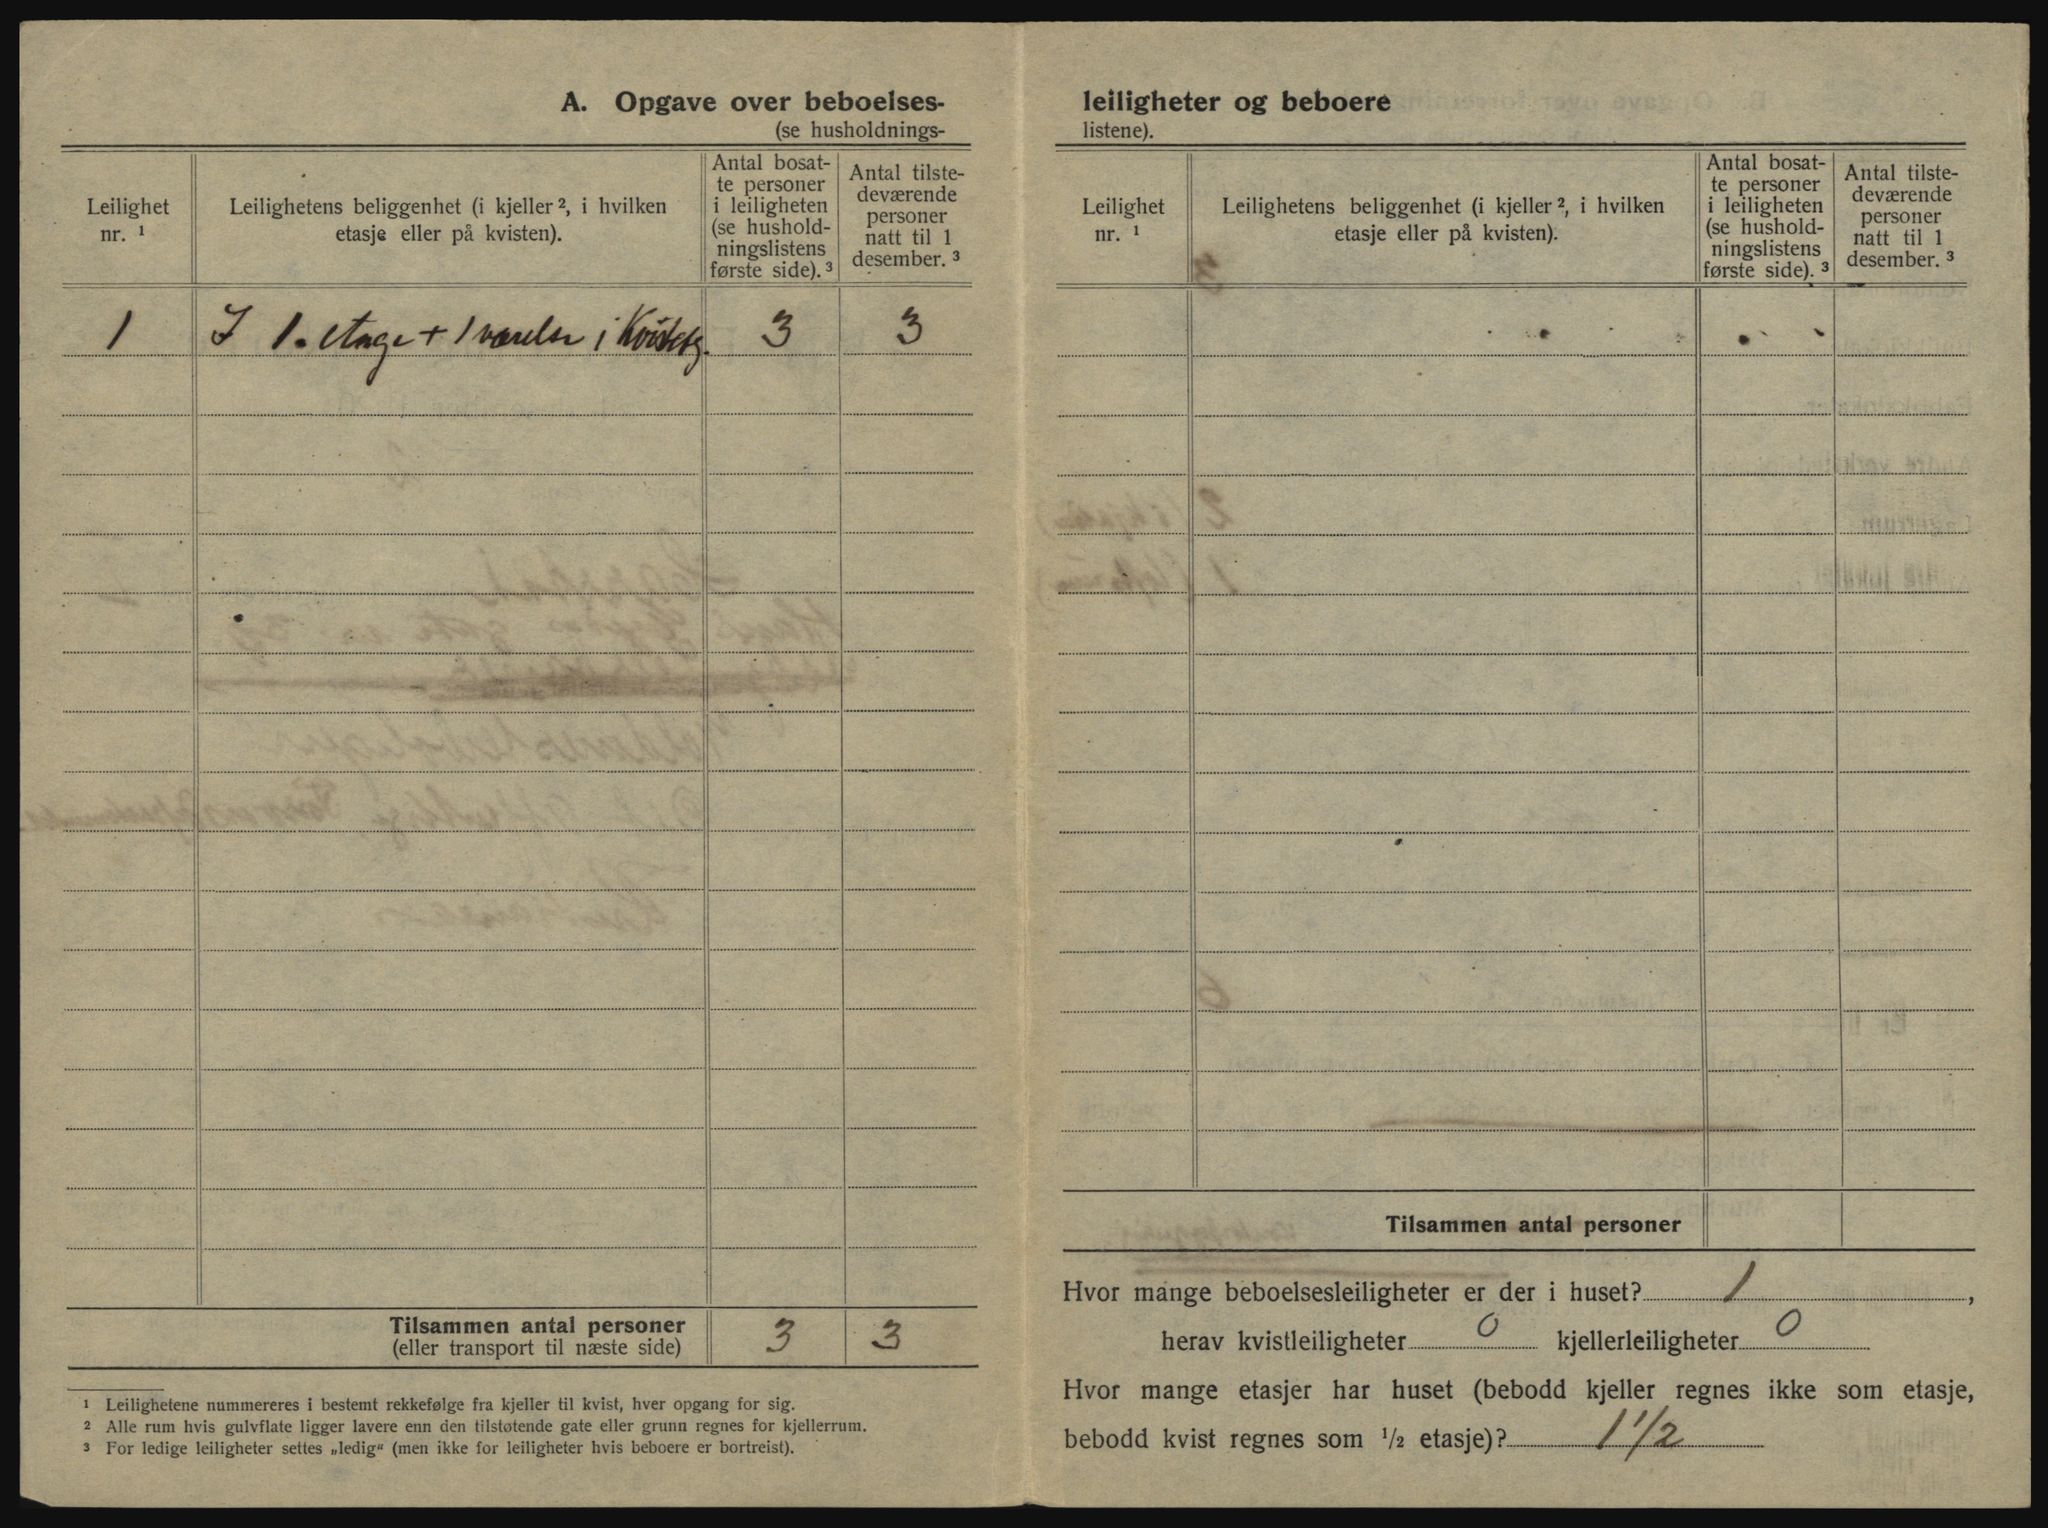 A. Opgave over beboelses-
(se husholdnings-
Leilighet
nr. ¹
Leilighetens beliggenhet (i kjeller ², i hvilken
etasje eller på kvisten).
Antal bosat-
te personer
i leiligheten
(se hushold-
ningslistens
første side). ³
Antal tilste-
deværende
personer
natt til 1
desember. ³
1 I 1. etage + 1 værelse i Kvistetg. 3 3
Tilsammen antal personer 3 3
(eller transport til næste side)
¹ Leilighetene nummereres i bestemt rekkefølge fra kjeller til kvist, hver opgang for sig.
² Alle rum hvis gulvflate ligger lavere enn den tilstøtende gate eller grunn regnes for kjellerrum.
³ For ledige leiligheter settes „ledig“ (men ikke for leiligheter hvis beboere er bortreist).
leiligheter og beboere
listene).
Leilighet
nr. ¹
Leilighetens beliggenhet (i kjeller ², i hvilken
etasje eller på kvisten).
Antal bosat-
te personer
i leiligheten
(se hushold-
ningslistens
første side). ³
Antal tilste-
deværende
personer
natt til 1
desember. ³
Tilsammen antal personer
Hvor mange beboelsesleiligheter er der i huset? 1,
herav kvistleiligheter 0 kjellerleiligheter 0
Hvor mange etasjer har huset (bebodd kjeller regnes ikke som etasje,
bebodd kvist regnes som ½ etasje)? 1 1/2